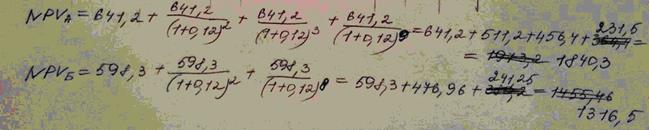 NPVА = 641,2 + 641,2/(1+0,12)² + 641,2/(1+0,12)³ + 641,2/(1+0,12)9 = 641,2 + 511,2 + 456,4 + 231,5 =
= 1973,2 1840,3
NPVБ = 598,3 + 598,3/(1+0,12)² + 598,3/(1+0,12)8 = 598,3 + 476,96 + 241,25 = 1455,46
1316,5